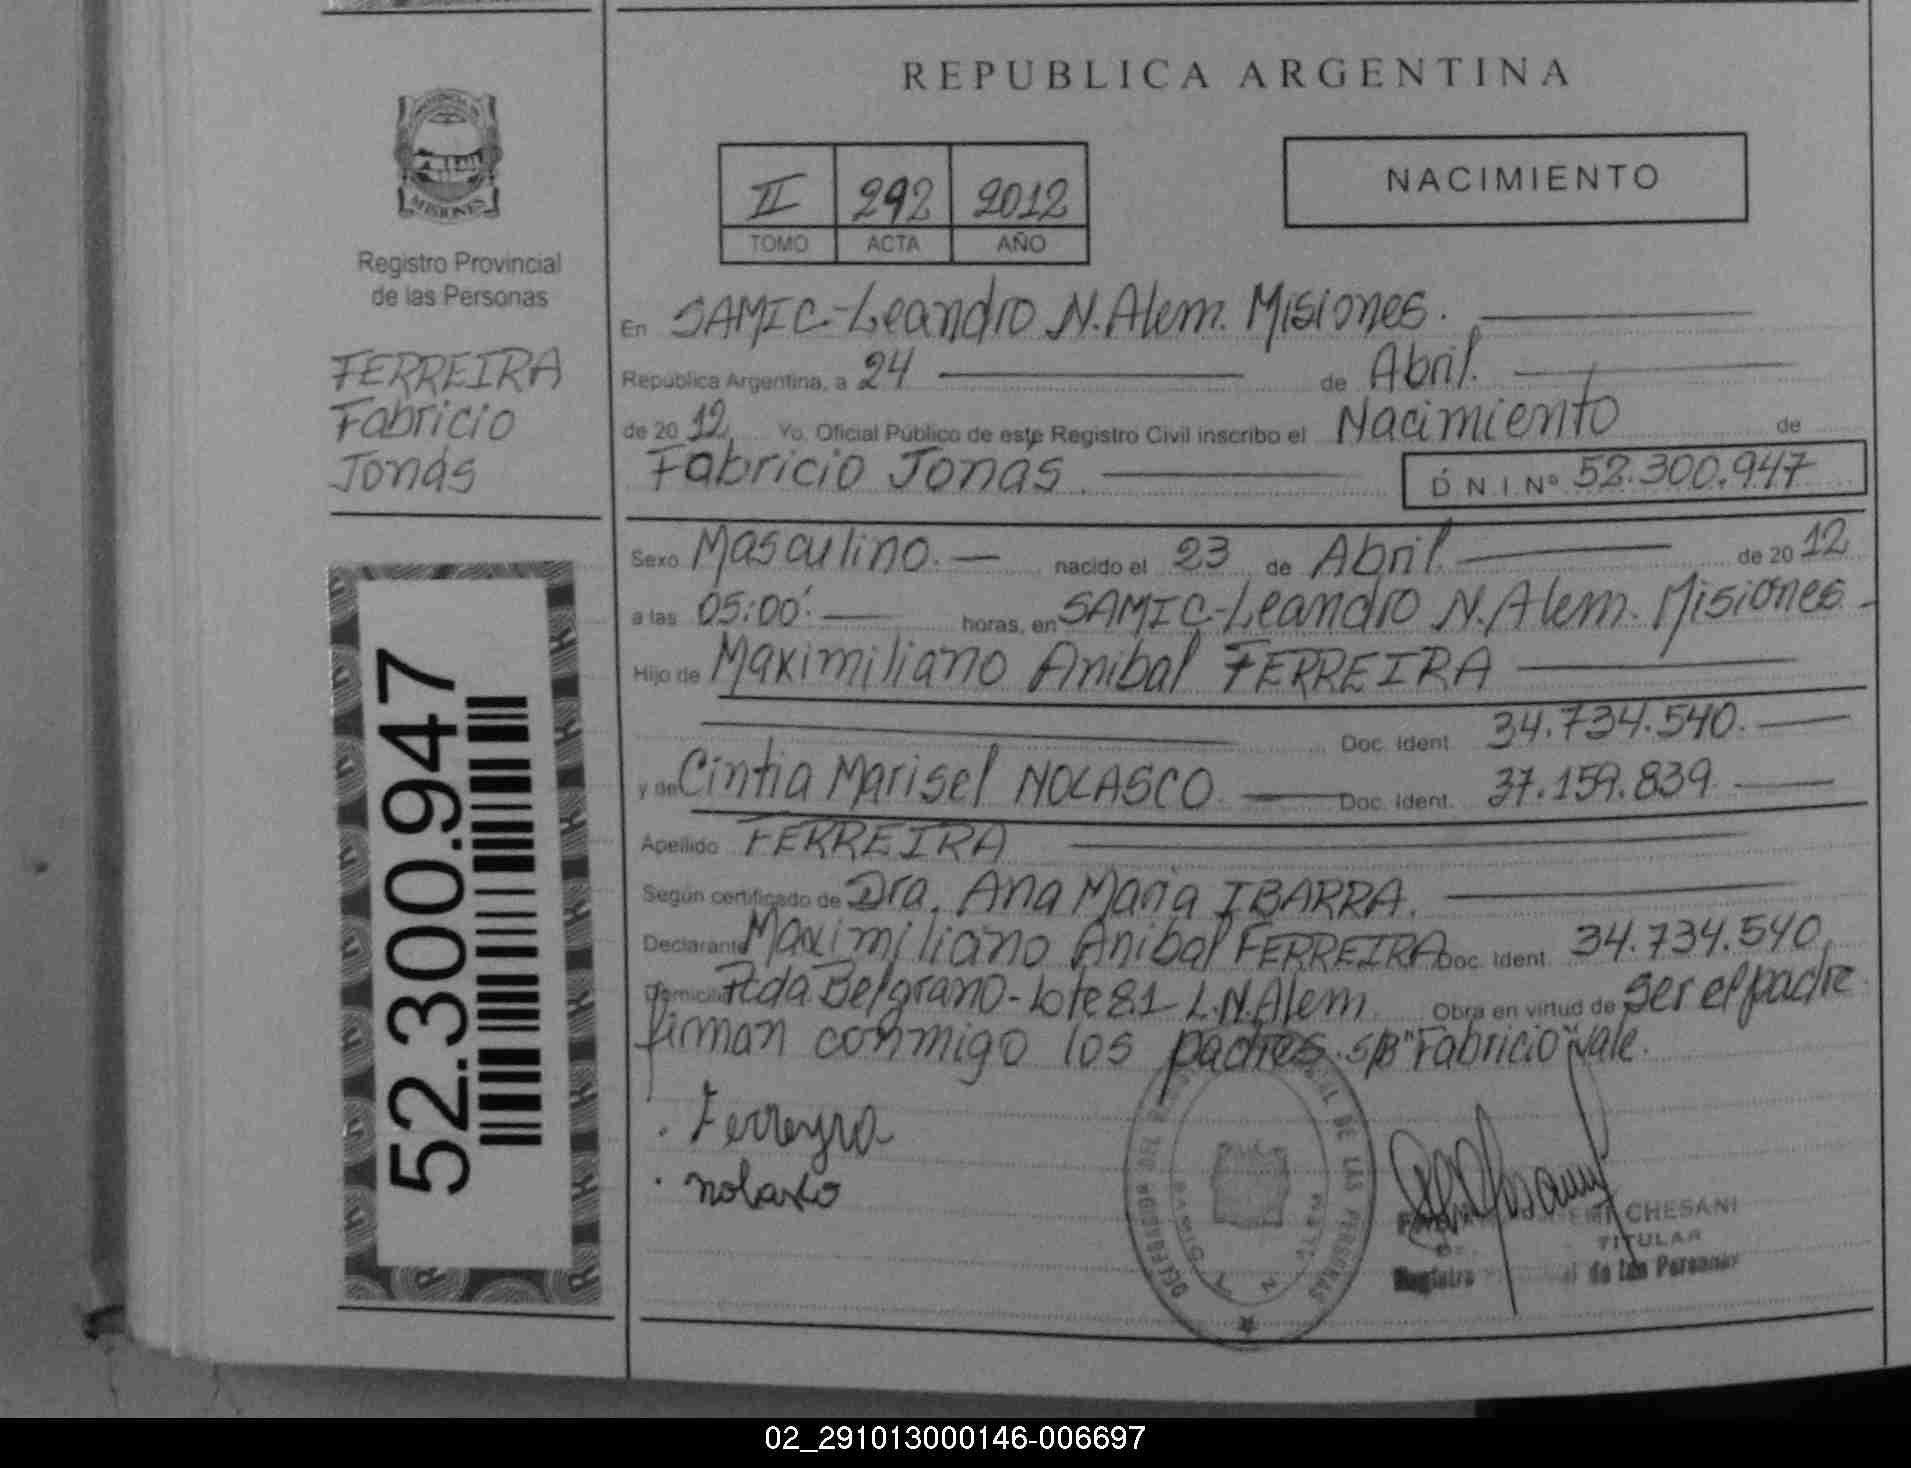 REPUBLICA ARGENTINA
II 292 2012
TOMO ACTA AÑO
NACIMIENTO
MISIONES
Registro Provincial
de las Personas
FERREIRA
Fabricio
Jonás
52.300.947
En SAMIC-Leandro N. Alem. Misiones.
República Argentina, a 24 de Abril.
de 2012, Yo, Oficial Público de este Registro Civil inscribo el Nacimiento de
Fabricio Jonás D.N.I.Nº 52.300.947
Sexo Masculino. nacido el 23 de Abril de 2012
a las 05:00'. horas, en SAMIC-Leandro N. Alem. Misiones
Hijo de Maximiliano Anibal FERREIRA
Doc. Ident. 34.734.540.
y de Cintia Marisel NOLASCO. Doc. Ident. 37.159.839
Apellido FERREIRA
Según certificado de Dra. Ana María IBARRA.
Declarante Maximiliano Anibal FERREIRA Doc. Ident. 34.734.540
Domicilio Pcda. Belgrano-Lote 81-L.N.Alem. Obra en virtud de ser el padre
firman conmigo los padres. S/B "Fabricio" Vale.
Ferreyra
nolasco
DE LAS PERSONAS
CHESANI
TITULAR
Registro de las Personas
02_291013000146-006697